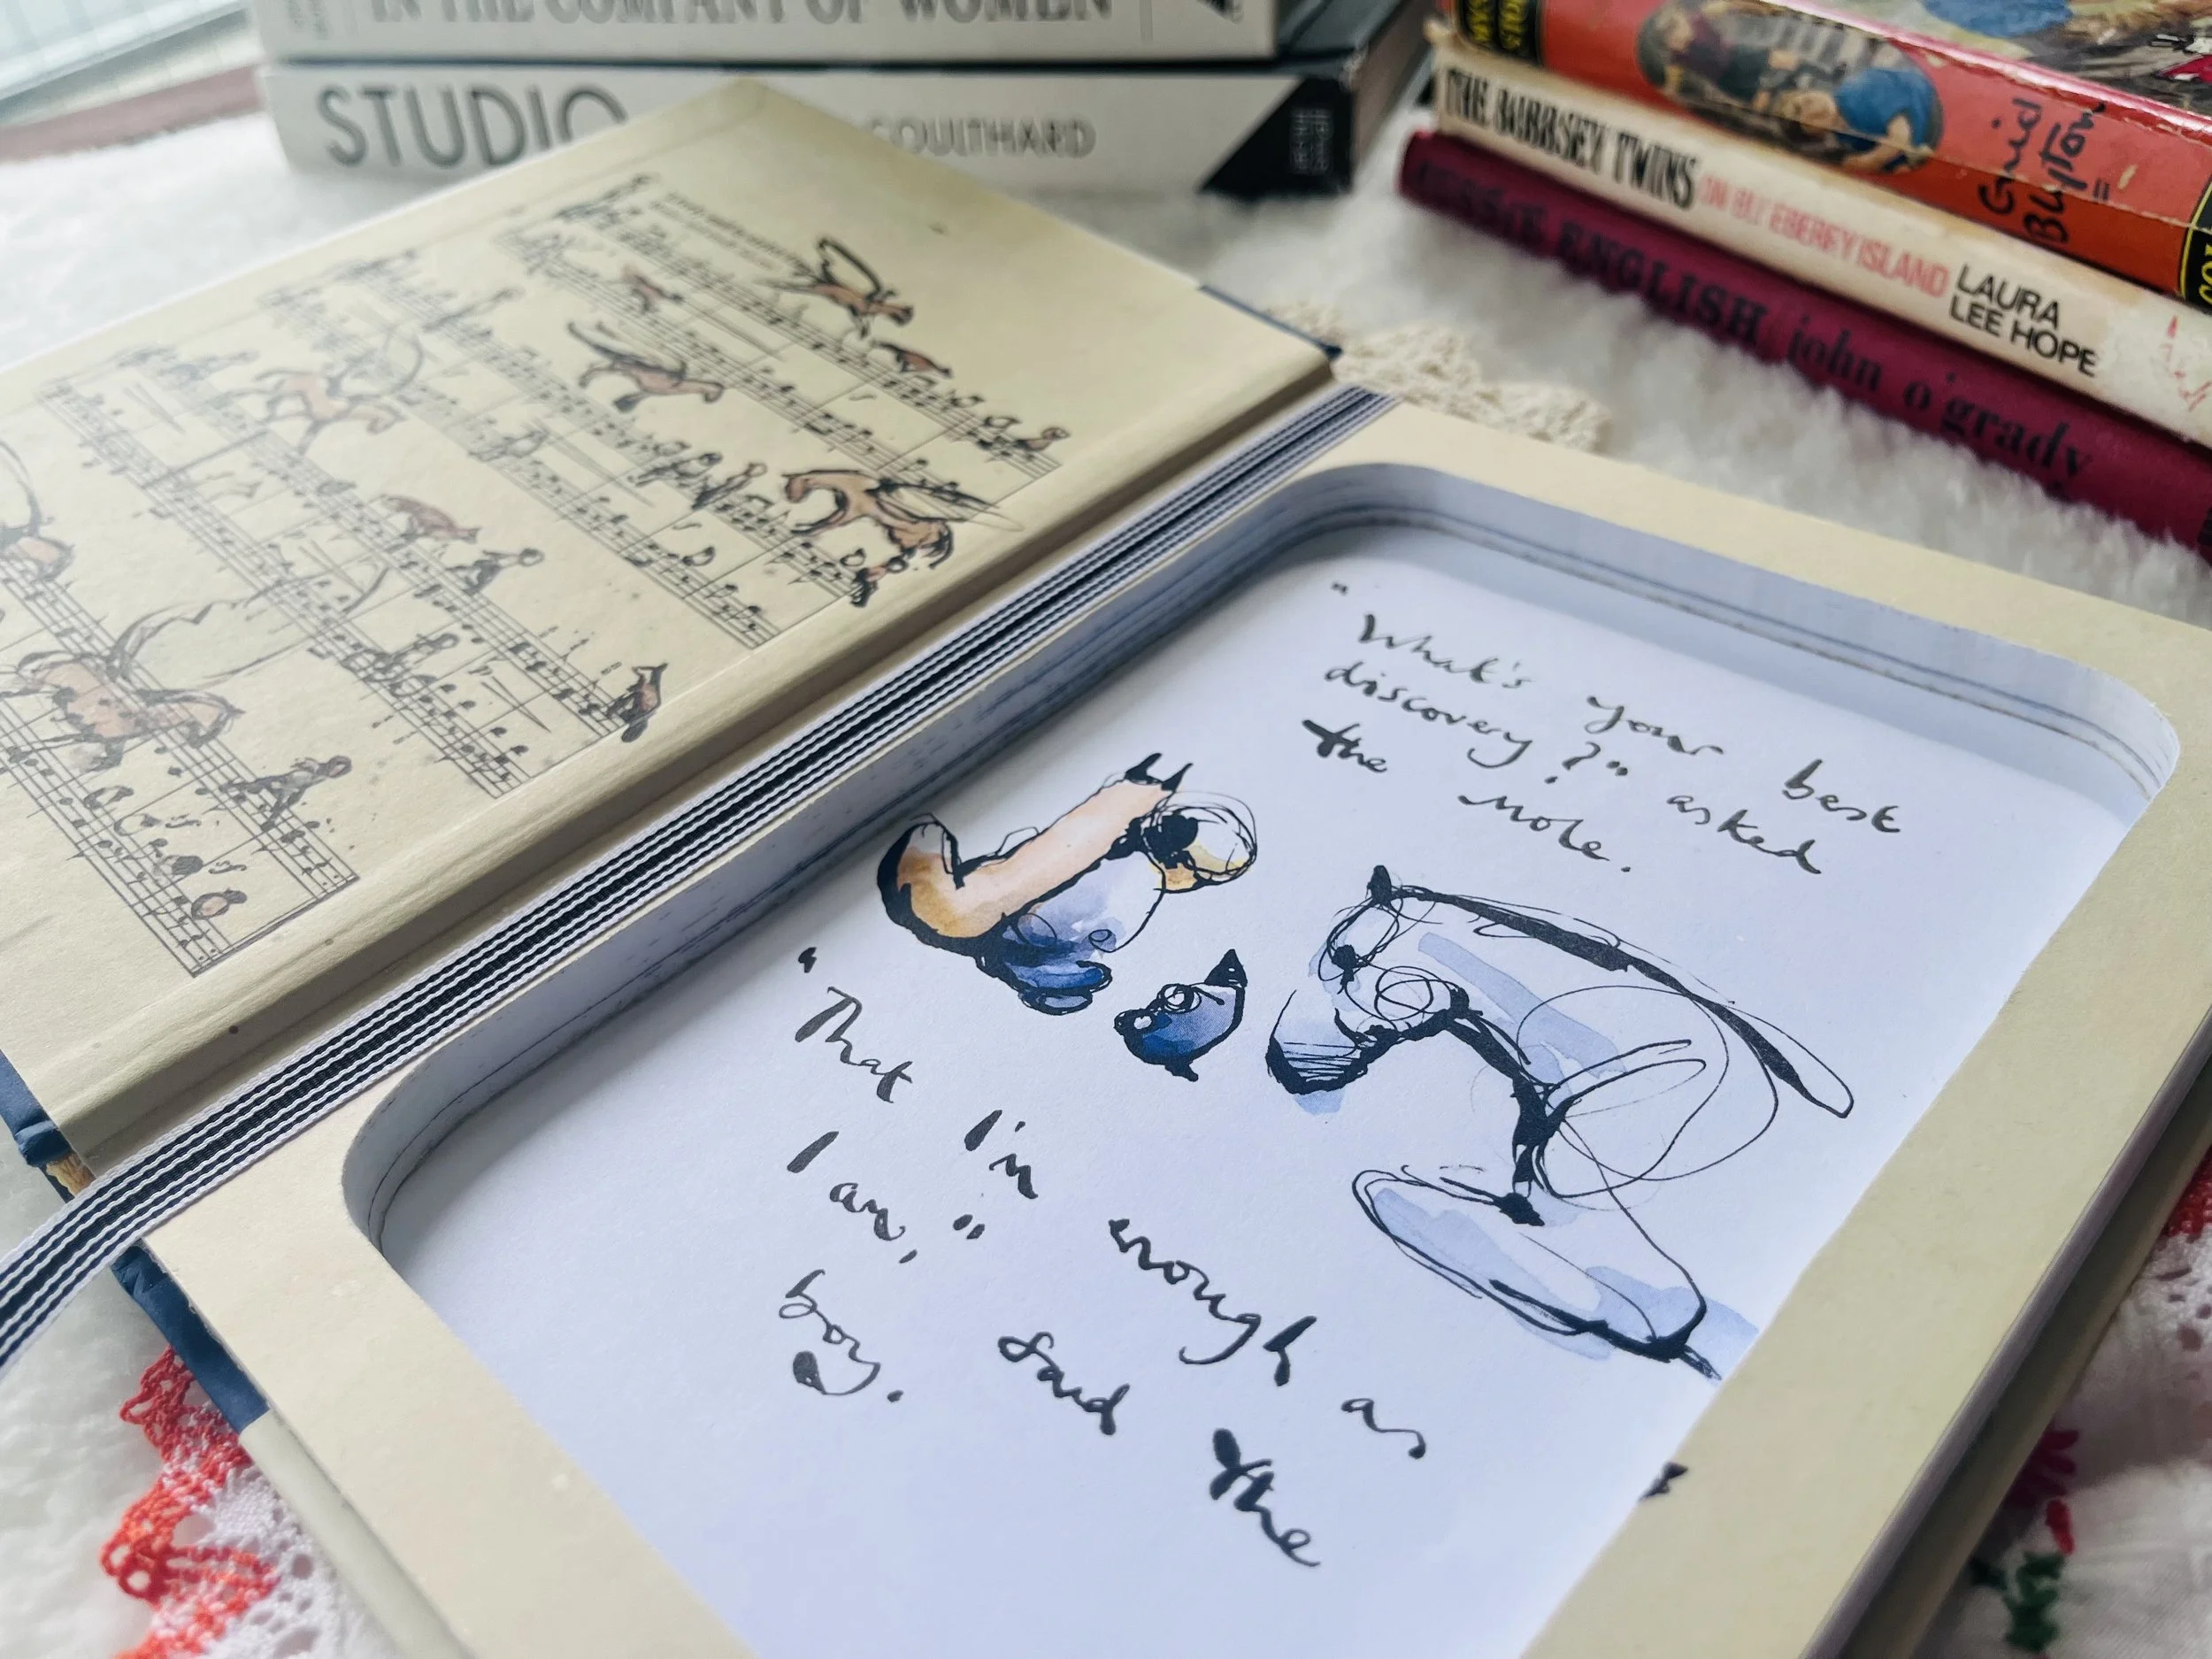 IN THE COMPANY OF WOMEN
STUDIO
COULTHARD
Enid
Blyton
THE BOBBSEY TWINS ON BLUEBERRY ISLAND LAURA
LEE HOPE
ENGLISH john o'grady
"What's your best
discovery?" asked
the mole.
"That I'm enough as
I am," said the
boy.